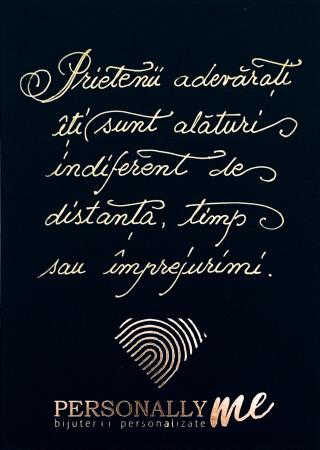 Prietenii adevărați
îți sunt alături
indiferent de
distanța, timp
sau împrejurimi.
PERSONALLY me
bijuterii personalizate